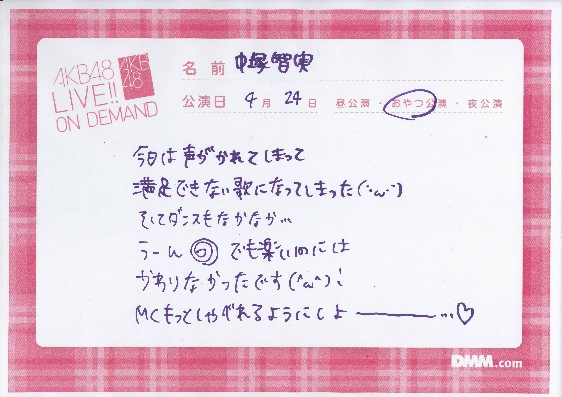 AKB48
LIVE!!
ON DEMAND
AKB
48
名前 中塚智実
公演日 4月24日 昼公演・おやつ公演・夜公演
今日は声がかれてしまって
満足できない歌になってしまった(´・ω・`)
そしてダンスもなかなか…
うーん でも楽しいのには
かわりなかったです(^ω^)!
MCもっとしゃべれるようにしよー…♡
DMM.com